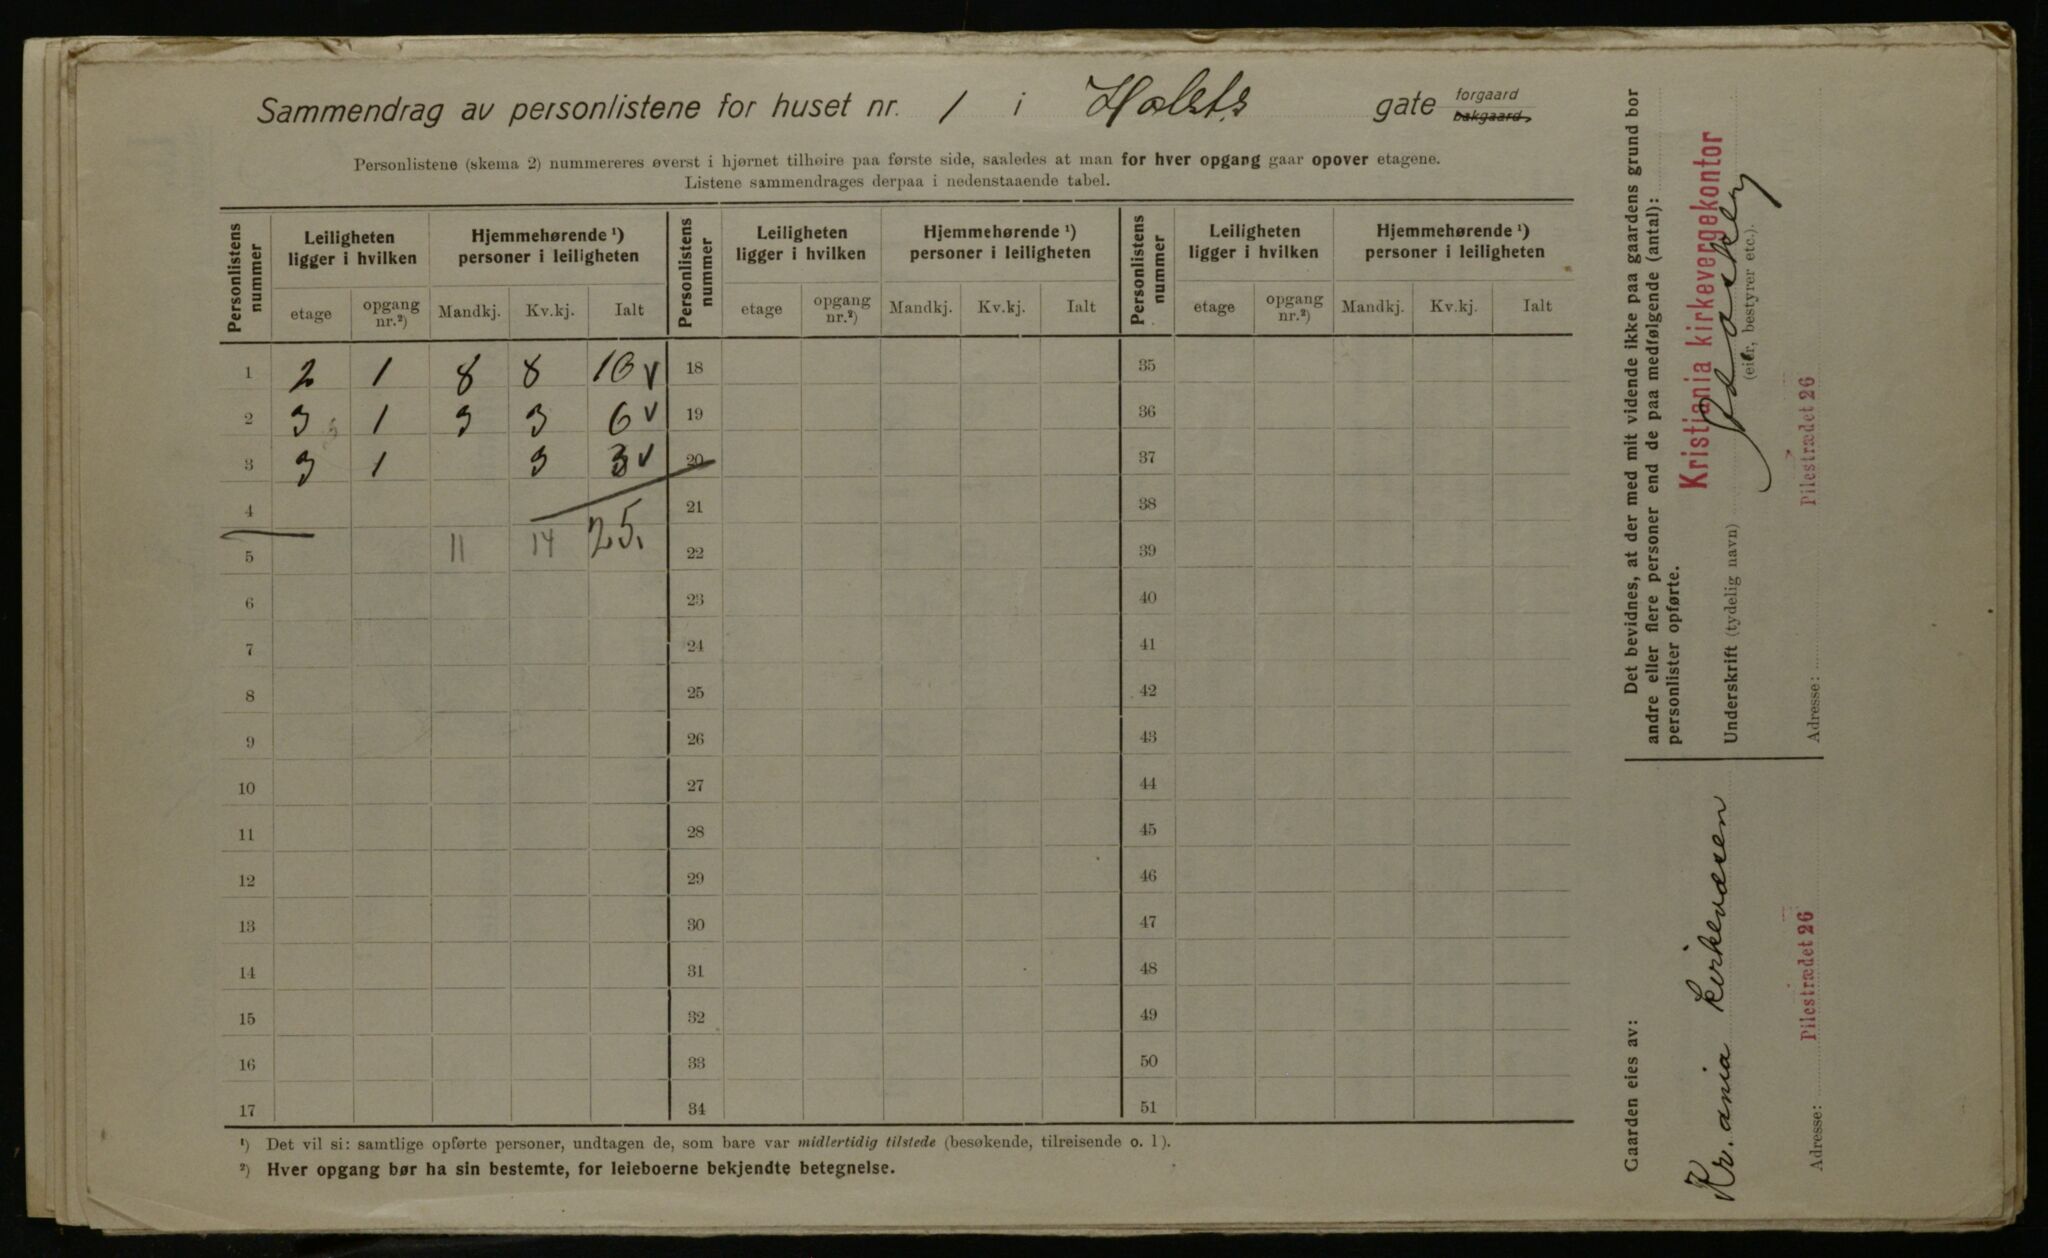 Sammendrag av personlistene for huset nr. 1 i Holsts gate forgaard bakgaard,
Personlistene (skema 2) nummereres øverst i hjørnet tilhøire paa første side, saaledes at man for hver opgang gaar opover etagene.
Listene sammendrages derpaa i nedenstaaende tabel.
Personlistens nummer | Leiligheten ligger i hvilken | Hjemmehørende ¹) personer i leiligheten | Personlistens nummer | Leiligheten ligger i hvilken | Hjemmehørende ¹) personer i leiligheten | Personlistens nummer | Leiligheten ligger i hvilken | Hjemmehørende ¹) personer i leiligheten
etage | opgang nr.²) | Mandkj. | Kv.kj. | Ialt | etage | opgang nr.²) | Mandkj. | Kv.kj. | Ialt | etage | opgang nr.²) | Mandkj. | Kv.kj. | Ialt
1 2 1 8 8 16 v 18 35
2 3 1 3 3 6 v 19 36
3 3 1 3 3 v 20 37
4 21 38
5 11 14 25. 22 39
6 23 40
7 24 41
8 25 42
9 26 43
10 27 44
11 28 45
12 29 46
13 30 47
14 31 48
15 32 49
16 33 50
17 34 51
¹) Det vil si: samtlige opførte personer, undtagen de, som bare var midlertidig tilstede (besøkende, tilreisende o. l).
²) Hver opgang bør ha sin bestemte, for leieboerne bekjendte betegnelse.
Det bevidnes, at der med mit vidende ikke paa gaardens grund bor
andre eller flere personer end de paa medfølgende (antal):
personlister opførte.
Kristiania kirkevergekontor
Underskrift (tydelig navn)
(eier, bestyrer etc.).
Adresse: Pilestrædet 26
Gaarden eies av:
Kr.ania kirkevæsen
Adresse: Pilestrædet 26